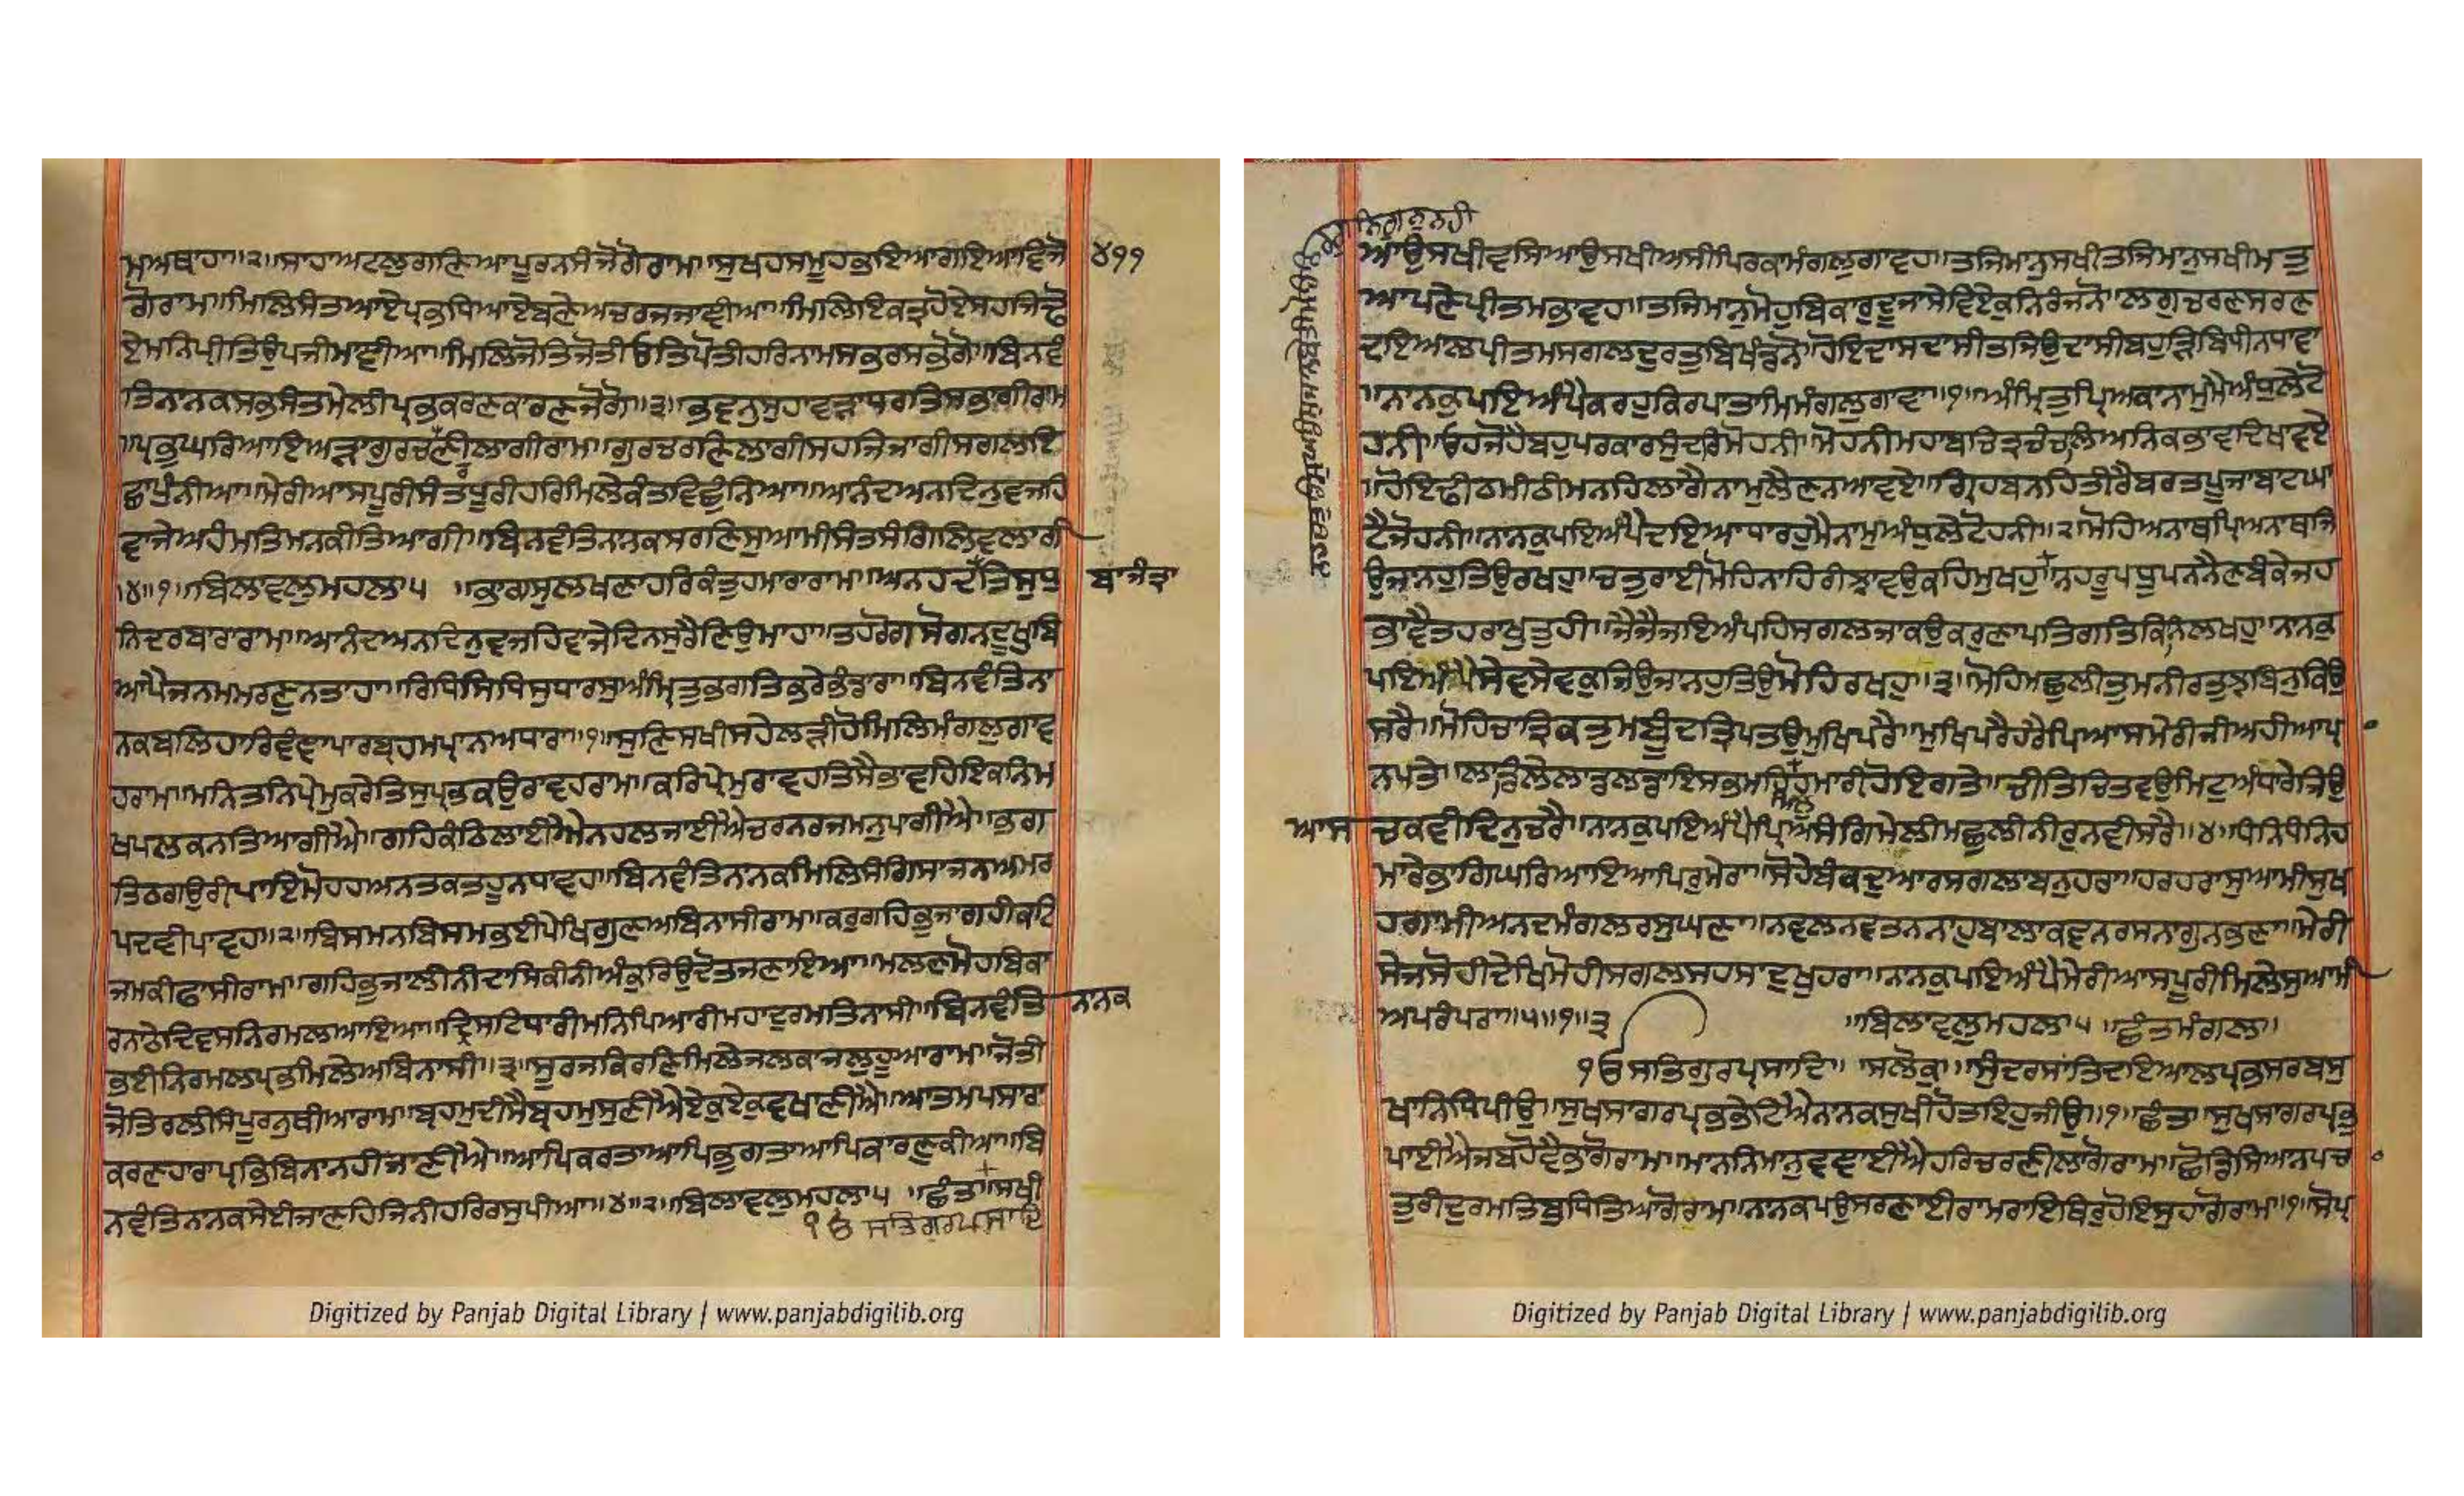 ਮਅਥਾਹਾ॥੨॥ਸਾਹਾਅਟਲੁਗਣਿਆਪੂਰਨਸੰਜੋਗੋਰਾਮ॥ਸੁਖਹਸਮੂਹਭਇਆਗਇਆਵਿਜੋ ੪੧੧
ਗੋਰਾਮ॥ਮਿਲਿਸੰਤਆਏਪ੍ਰਭਧਿਆਏਬਣੇਅਚਰਜਜਾਞੀਆ॥ਮਿਲਿਇਕਤ੍ਰਹੋਏਸਹਜਿਢੋ
ਏਮਨਿਪ੍ਰੀਤਿਉਪਜੀਮਾਞੀਆ॥ਮਿਲਿਜੋਤਿਜੋਤੀਓਤਿਪੋਤੀਹਰਿਨਾਮਸਭਰਸਭੋਗੋ॥ਬਿਨਵੰ
ਤਿਨਾਨਕਸਭਸੰਤਮੇਲੀਪ੍ਰਭਕਰਣਕਾਰਣਜੋਗੋ॥੩॥ਭਵਨੁਸੁਹਾਵੜਾਧਰਤਿਸਭਾਗੀਰਾਮ
॥ਪ੍ਰਭੁਘਰਿਆਇਅੜਾਗੁਰਚਰਣੀਲਾਗੀਰਾਮ॥ਗੁਰਚਰਣਿਲਾਗੀਸਹਜਿਜਾਗੀਸਗਲਇ
ਛਾਪੁੰਨੀਆ॥ਮੇਰੀਆਸਪੂਰੀਸੰਤਧੂਰੀਹਰਿਮਿਲੇਕੰਤਵਿਛੁੰਨਿਆ॥ਆਨੰਦਅਨਦਿਨੁਵਜਹਿ
ਵਾਜੇਅਹੰਮਤਿਮਨਕੀਤਿਆਗੀ॥ਬਿਨਵੰਤਿਨਾਨਕਸਰਣਿਸੁਆਮੀਸੰਤਸੰਗਿਲਿਵਲਾਗੀ
॥੪॥੧॥ਬਿਲਾਵਲੁਮਹਲਾ੫ ॥ਭਾਗਸੁਲਖਣਾਹਰਿਕੰਤੁਹਮਾਰਾਰਾਮ॥ਅਨਹਦ ਬਾਜੰਤ੍ਰਾ ਤਿਸੁਧੁ
ਨਿਦਰਬਾਰਾਰਾਮ॥ਆਨੰਦਅਨਦਿਨੁਵਜਹਿਵਾਜੇਦਿਨਸੁਰੈਣਿਉਮਾਹਾ॥ਤਹਰੋਗਸੋਗਨਦੂਖੁਬਿ
ਆਪੈਜਨਮਮਰਣੁਨਤਾਹਾ॥ਰਿਧਿਸਿਧਿਸੁਧਾਰਸੁਅੰਮ੍ਰਿਤੁਭਗਤਿਭਰੇਭੰਡਾਰਾ॥ਬਿਨਵੰਤਿਨਾ
ਨਕਬਲਿਹਾਰਿਵੰਞਾਪਾਰਬ੍ਰਹਮਪ੍ਰਾਨਅਧਾਰਾ॥੧॥ਸੁਣਿਸਖੀਸਹੇਲੜੀਹੋਮਿਲਿਮੰਗਲੁਗਾਵ
ਹਰਾਮ॥ਮਨਿਤਨਿਪ੍ਰੇਮੁਕਰੇਤਿਸੁਪ੍ਰਭਕਉਰਾਵਹਰਾਮ॥ਕਰਿਪ੍ਰੇਮੁਰਾਵਹਤਿਸੈਭਾਵਹਇਕਨਿਮ
ਖਪਲਕਨਤਿਆਗੀਐ॥ਗਹਿਕੰਠਿਲਾਈਐਨਹਲਜਾਈਐਚਰਨਰਜਮਨੁਪਾਗੀਐ॥ਭਗ
ਤਿਠਗਉਰੀਪਾਇਮੋਹਹਅਨਤਕਤਹੂਨਧਾਵਹ॥ਬਿਨਵੰਤਿਨਾਨਕਮਿਲਿਸੰਗਿਸਾਜਨਅਮਰ
ਪਦਵੀਪਾਵਹ॥੨॥ਬਿਸਮਨਬਿਸਮਭਈਪੇਖਿਗੁਣਅਬਿਨਾਸੀਰਾਮ॥ਕਰੁਗਹਿਭੁਜਾਗਹੀਕਟਿ
ਜਮਕੀਫਾਸੀਰਾਮ॥ਗਹਿਭੁਜਾਲੀਨੀਦਾਸਿਕੀਨੀਅੰਕੁਰਿਉਦੋਤਜਣਾਇਆ॥ਮਲਣਮੋਹਬਿਕਾ
ਰਨਾਠੇਦਿਵਸਨਿਰਮਲਆਇਆ॥ਦ੍ਰਿਸਟਿਧਾਰੀਮਨਿਪਿਆਰੀਮਹਾਦੁਰਮਤਿਨਾਸੀ॥ਬਿਨਵੰਤਿ ਨਾਨਕ
ਭਈਨਿਰਮਲਪ੍ਰਭਮਿਲੇਅਬਿਨਾਸੀ॥੩॥ਸੂਰਜਕਿਰਣਿਮਿਲੇਜਲਕਾਜਲੁਹੂਆਰਾਮ॥ਜੋਤੀ
ਜੋਤਿਰਲੀਸੰਪੂਰਨੁਥੀਆਰਾਮ॥ਬ੍ਰਹਮੁਦੀਸੈਬ੍ਰਹਮੁਸੁਣੀਐਏਕੁਏਕੁਵਖਾਣੀਐ॥ਆਤਮਪਸਾਰਾ
ਕਰਣਹਾਰਾਪ੍ਰਭਬਿਨਾਨਹੀਜਾਣੀਐ॥ਆਪਿਕਰਤਾਆਪਿਭੁਗਤਾਆਪਿਕਾਰਣੁਕੀਆ॥ਬਿ
ਨਵੰਤਿਨਾਨਕਸੇਈਜਾਣਹਿਜਿਨੀਹਰਿਰਸੁਪੀਆ॥੪॥੨॥ਬਿਲਾਵਲੁਮਹਲਾ੫ ॥ਛੰਤ॥ਸਖੀ
ੴ ਸਤਿਗੁਰਪ੍ਰਸਾਦਿ
ਆਉਸਖੀਵਸਿਆਉਸਖੀਅਸੀਪਿਰਕਾਮੰਗਲੁਗਾਵਹ॥ਤਜਿਮਾਨੁਸਖੀਤਜਿਮਾਨੁਸਖੀਮਤੁ
ਆਪਣੇਪ੍ਰੀਤਮਭਾਵਹ॥ਤਜਿਮਾਨੁਮੋਹੁਬਿਕਾਰੁਦੂਜਾਸੇਵਿਏਕੁਨਿਰੰਜਨੋ॥ਲਗੁਚਰਣਸਰਣ
ਦਇਆਲਪ੍ਰੀਤਮਸਗਲਦੁਰਤਬਿਖੰਡਨੋ॥ਹੋਇਦਾਸਦਾਸੀਤਜਿਉਦਾਸੀਬਹੁੜਿਬਿਧੀਨਧਾਵਾ
॥ਨਾਨਕੁਪਇਅੰਪੈਕਰਹੁਕਿਰਪਾਤਾਮਿਮੰਗਲੁਗਾਵਾ॥੧॥ਅੰਮ੍ਰਿਤੁਪ੍ਰਿਅਕਾਨਾਮੁਮੈਅੰਧੁਲੇਟੋ
ਹਨੀ॥ਓਹਜੋਹੈਬਹੁਪਰਕਾਰਸੁੰਦਰਿਮੋਹਨੀ॥ਮੋਹਨੀਮਹਾਬਚਿਤ੍ਰਚੰਚਲਿਅਨਿਕਭਾਵਦਿਖਾਵਏ
॥ਹੋਇਢੀਠਮੀਠੀਮਨਹਿਲਾਗੈਨਾਮੁਲੈਣਨਆਵਏ॥ਗ੍ਰਿਹਬਨਹਿਤੀਰੈਬਰਤਪੂਜਾਬਾਟਘਾ
ਟੈਜੋਹਨੀ॥ਨਾਨਕੁਪਇਅੰਪੈਦਇਆਧਾਰਹੁਮੈਨਾਮੁਅੰਧੁਲੇਟੋਹਨੀ॥੨॥ਮੋਹਿਅਨਾਥਪ੍ਰਿਅਨਾਥਜਿ
ਉਜਾਨਹੁਤਿਉਰਖਹੁ॥ਚਤੁਰਾਈਮੋਹਿਨਾਹਿਰੀਝਾਵਉਕਹਿਮੁਖਹੁ॥ਨਹਰੂਪਧੂਪਨਨੈਣਬੰਕੇਜਹ
ਭਾਵੈਤਹਰਾਖੁਤੁਹੀ॥ਜੈਜੈਜਇਅੰਪਹਿਸਗਲਜਾਕਉਕਰੁਣਾਪਤਿਗਤਿਕਿਨਿਲਖਹੁ॥ਨਾਨਕੁ
ਪਇਅੰਪੈਸੇਵਸੇਵਕੁਜਿਉਜਾਨਹੁਤਿਉਮੋਹਿਰਖਹੁ॥੩॥ਮੋਹਿਮਛੁਲੀਤੁਮਨੀਰਤੁਝਬਿਨੁਕਿਉ
ਸਰੈ॥ਮੋਹਿਚਾਤ੍ਰਿਕਤੁਮਬੂੰਦਤ੍ਰਿਪਤਉਮੁਖਿਪਰੈ॥ਮੁਖਿਪਰੈਹਰੈਪਿਆਸਮੇਰੀਜੀਅਹੀਆਪ੍ਰਾ
ਨਪਤੇ॥ਲਾਡਿਲੇਲਾਡਲਡਾਇਸਭਮਹਿਮਿਲੁਹਮਾਰੀਹੋਇਗਤੇ॥ਚੀਤਿਚਿਤਵਉਮਿਟੁਅੰਧਾਰੇਜਿਉ
ਆਸ ਚਕਵੀਦਿਨੁਚਰੈ॥ਨਾਨਕੁਪਇਅੰਪੈਪ੍ਰਿਅਸੰਗਿਮੇਲੀਮਛੁਲੀਨੀਰੁਨਵੀਸਰੈ॥੪॥ਧਨਿਧੰਨਿਹ
ਮਾਰੇਭਾਗਘਰਿਆਇਆਪਿਰੁਮੇਰਾ॥ਸੋਹੇਬੰਕਦੁਆਰਸਗਲਾਬਨੁਹਰਾ॥ਹਰਹਰਾਸੁਆਮੀਸੁਖ
ਹਗਾਮੀਅਨਦਮੰਗਲਰਸੁਘਣਾ॥ਨਵਲਨਵਤਨਨਾਹੁਬਾਲਾਕਵਨਰਸਨਾਗੁਨਭਣਾ॥ਮੇਰੀ
ਸੇਜਸੋਹੀਦੇਖਿਮੋਹੀਸਗਲਸਹਸਾਦੁਖੁਹਰਾ॥ਨਾਨਕੁਪਇਅੰਪੈਮੇਰੀਆਸਪੂਰੀਮਿਲੇਸੁਆਮੀ
ਅਪਰੰਪਰਾ॥੫॥੧॥੩ ॥ਬਿਲਾਵਲੁਮਹਲਾ੫ ॥ਛੰਤਮੰਗਲ॥
ੴਸਤਿਗੁਰਪ੍ਰਸਾਦਿ॥ ਸਲੋਕੁ॥ਸੁੰਦਰਸਾਂਤਿਦਇਆਲਪ੍ਰਭਸਰਬਸੁ
ਖਾਨਿਧਿਪੀਉ॥ਸੁਖਸਾਗਰਪ੍ਰਭਭੇਟਿਐਨਾਨਕਸੁਖੀਹੋਤਇਹੁਜੀਉ॥੧॥ਛੰਤ॥ਸੁਖਸਾਗਰਪ੍ਰਭੁ
ਪਾਈਐਜਬਹੋਵੈਭਾਗੋਰਾਮ॥ਮਾਨਨਿਮਾਨੁਵਞਾਈਐਹਰਿਚਰਣੀਲਾਗੋਰਾਮ॥ਛੋਡਿਸਿਆਨਪਚਾ
ਤੁਰੀਦੁਰਮਤਿਬੁਧਿਤਿਆਗੋਰਾਮ॥ਨਾਨਕਪਉਸਰਣਾਈਰਾਮਰਾਇਥਿਰੁਹੋਇਸੁਹਾਗੋਰਾਮ॥੧॥ਸੋਪ੍ਰ
Digitized by Panjab Digital Library | www.panjabdigilib.org
Digitized by Panjab Digital Library | www.panjabdigilib.org